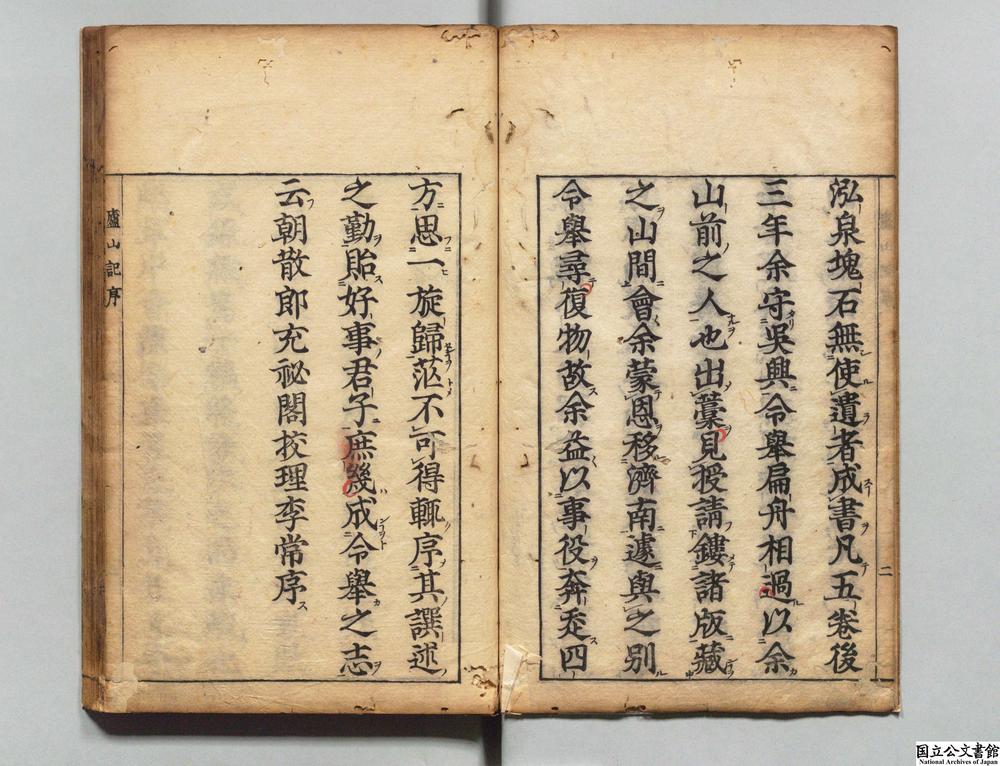 泓泉塊石無使遺者成書凡五卷後
三年余守吳興令舉扁舟相過以余
山前之人也出藁見授請鏤諸版藏
之山間會余蒙恩移濟南遽與之別
令舉尋復物故余益以事役奔走四
二
方思一旋歸茫不可得輒序其譔述
之勤貽好事君子庶幾成令舉之志
云朝散郎充祕閣校理李常序
廬山記序
国立公文書館
National Archives of Japan